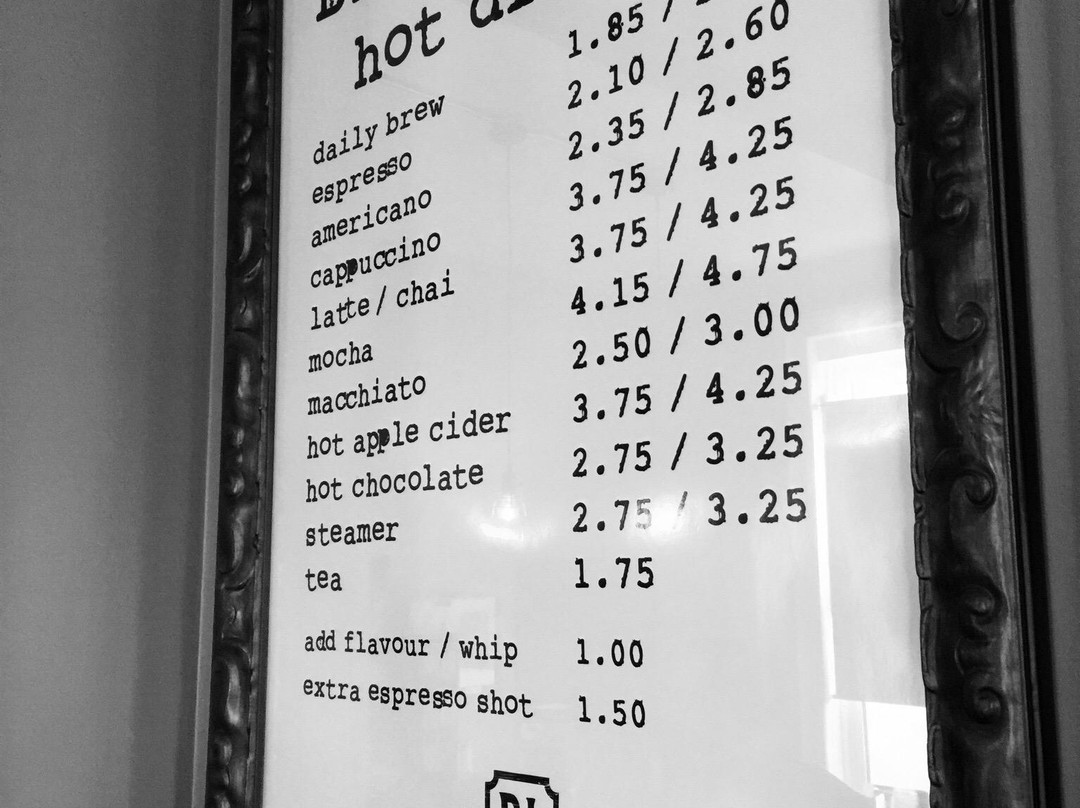 hot
daily brew 1.85 /
espresso 2.10 / 2.60
americano 2.35 / 2.85
cappuccino 3.75 / 4.25
latte / chai 3.75 / 4.25
mocha 4.15 / 4.75
macchiato 2.50 / 3.00
hot apple cider 3.75 / 4.25
hot chocolate 2.75 / 3.25
steamer 2.75 / 3.25
tea 1.75
add flavour / whip 1.00
extra espresso shot 1.50